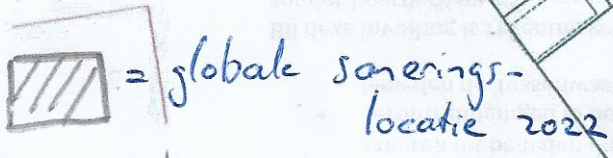 = globale sanerings-
locatie 2022